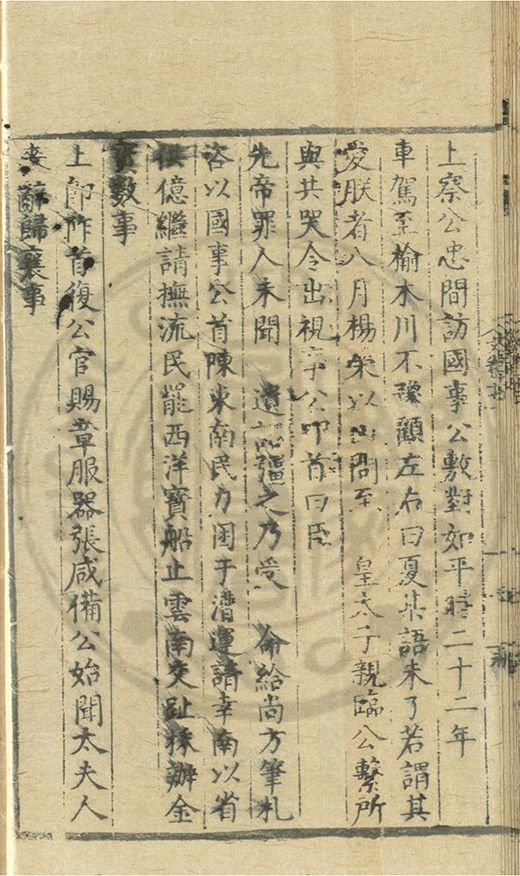 上察公忠間訪國事公敷對如平時二十二年
車駕至榆木川不豫顧左右曰夏某語未了若謂其
愛朕者八月楊榮以凶問至 皇太子親臨公繫所
與共哭令出視事公叩首曰臣
先帝罪人未聞 遺 彊之乃受 命給尚方筆札
咨以國事公首陳東南民力困于漕運請幸南以省
供億繼請撫流民罷西洋寶船止雲南交趾採辦金
寶數事
上即阼首復公官賜章服器張咸備公始聞太夫人
喪辭歸襄事